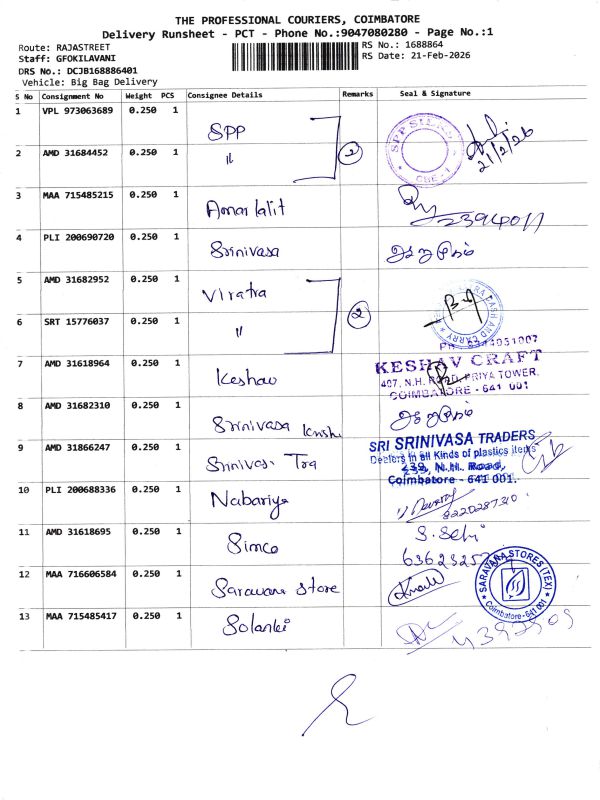 THE PROFESSIONAL COURIERS, COIMBATORE
Delivery Runsheet - PCT - Phone No.:9047080280 - Page No.:1
Route: RAJASTREET
RS No.: 1688864
Staff: GFOKILAVANI
RS Date: 21-Feb-2026
DRS No.: DCJB168886401
Vehicle: Big Bag Delivery
S No Consignment No Weight PCS Consignee Details Remarks Seal & Signature
1 VPL 973063689 0.250 1 SPP
SPP SILKS
CBE - 1
21/2/26
2 AMD 31684452 0.250 1 " 2
3 MAA 715485215 0.250 1 Amar lalit
4 PLI 200690720 0.250 1 Srinivasa
5 AMD 31682952 0.250 1 Viratra
CASH AND CARRY
6 SRT 15776037 0.250 1 " 2
7 AMD 31618964 0.250 1 Keshav
KESHAV CRAFT
407, N.H. ROAD, PRIYA TOWER,
COIMBATORE - 641 001
8 AMD 31682310 0.250 1 Srinivasa
9 AMD 31866247 0.250 1 Srinivas Tra
SRI SRINIVASA TRADERS
Dealers in all Kinds of plastics items
239, N.H. Road,
Coimbatore - 641 001.
10 PLI 200688336 0.250 1 Nabariya
8220287310
11 AMD 31618695 0.250 1 Simco
12 MAA 716606584 0.250 1 Saravana Store
SARAVANA STORES (TEX)
Coimbatore - 641 001
13 MAA 715485417 0.250 1 Solanki